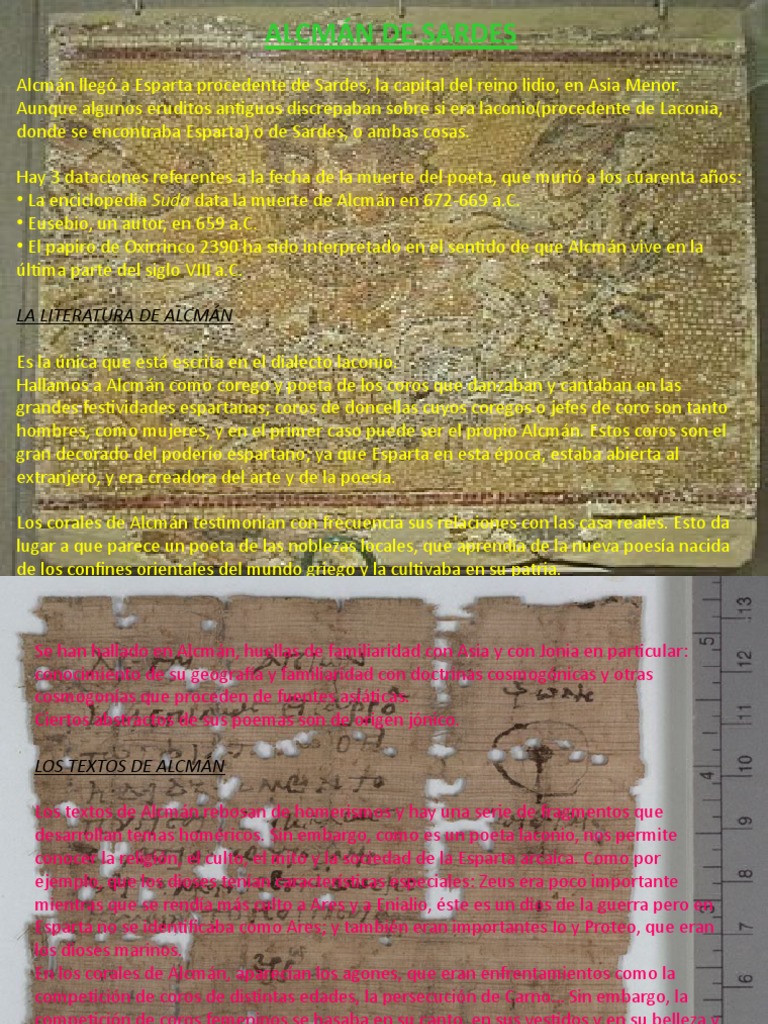 ALCMÁN DE SARDES
Alcmán llegó a Esparta procedente de Sardes, la capital del reino lidio, en Asia Menor.
Aunque algunos eruditos antiguos discrepaban sobre si era laconio(procedente de Laconia,
donde se encontraba Esparta),o de Sardes, o ambas cosas.
Hay 3 dataciones referentes a la fecha de la muerte del poeta, que murió a los cuarenta años:
• La enciclopedia Suda data la muerte de Alcmán en 672-669 a.C.
• Eusebio, un autor, en 659 a.C.
• El papiro de Oxirrinco 2390 ha sido interpretado en el sentido de que Alcmán vive en la
última parte del siglo VIII a.C.
LA LITERATURA DE ALCMÁN
Es la única que está escrita en el dialecto laconio.
Hallamos a Alcmán como corego y poeta de los coros que danzaban y cantaban en las
grandes festividades espartanas; coros de doncellas cuyos coregos o jefes de coro son tanto
hombres, como mujeres, y en el primer caso puede ser el propio Alcmán. Estos coros son el
gran decorado del poderío espartano; ya que Esparta en esta época, estaba abierta al
extranjero, y era creadora del arte y de la poesía.
Los corales de Alcmán testimonian con frecuencia sus relaciones con las casa reales. Esto da
lugar a que parece un poeta de las noblezas locales, que aprendía de la nueva poesía nacida
de los confines orientales del mundo griego y la cultivaba en su patria.
Se han hallado en Alcmán, huellas de familiaridad con Asia y con Jonia en particular:
conocimiento de su geografía y familiaridad con doctrinas cosmogónicas y otras
cosmogonías que proceden de fuentes asiáticas.
Ciertos abstractos de sus poemas son de origen jónico.
LOS TEXTOS DE ALCMÁN
Los textos de Alcmán rebosan de homerismos y hay una serie de fragmentos que
desarrollan temas homéricos. Sin embargo, como es un poeta laconio, nos permite
conocer la religión, el culto, el mito y la sociedad de la Esparta arcaica. Como por
ejemplo, que los dioses tenían características especiales: Zeus era poco importante
mientras que se rendía más culto a Ares y a Enialio, éste es un dios de la guerra pero en
Esparta no se identificaba como Ares; y también eran importantes Io y Proteo, que eran
los dioses marinos.
En los corales de Alcmán, aparecían los agones, que eran enfrentamientos como la
competición de coros de distintas edades, la persecución de Carno... Sin embargo, la
competición de coros femeninos se basaba en su canto, en sus vestidos y en su belleza y
13
12
11
10
9
8
7
6
5
4
3